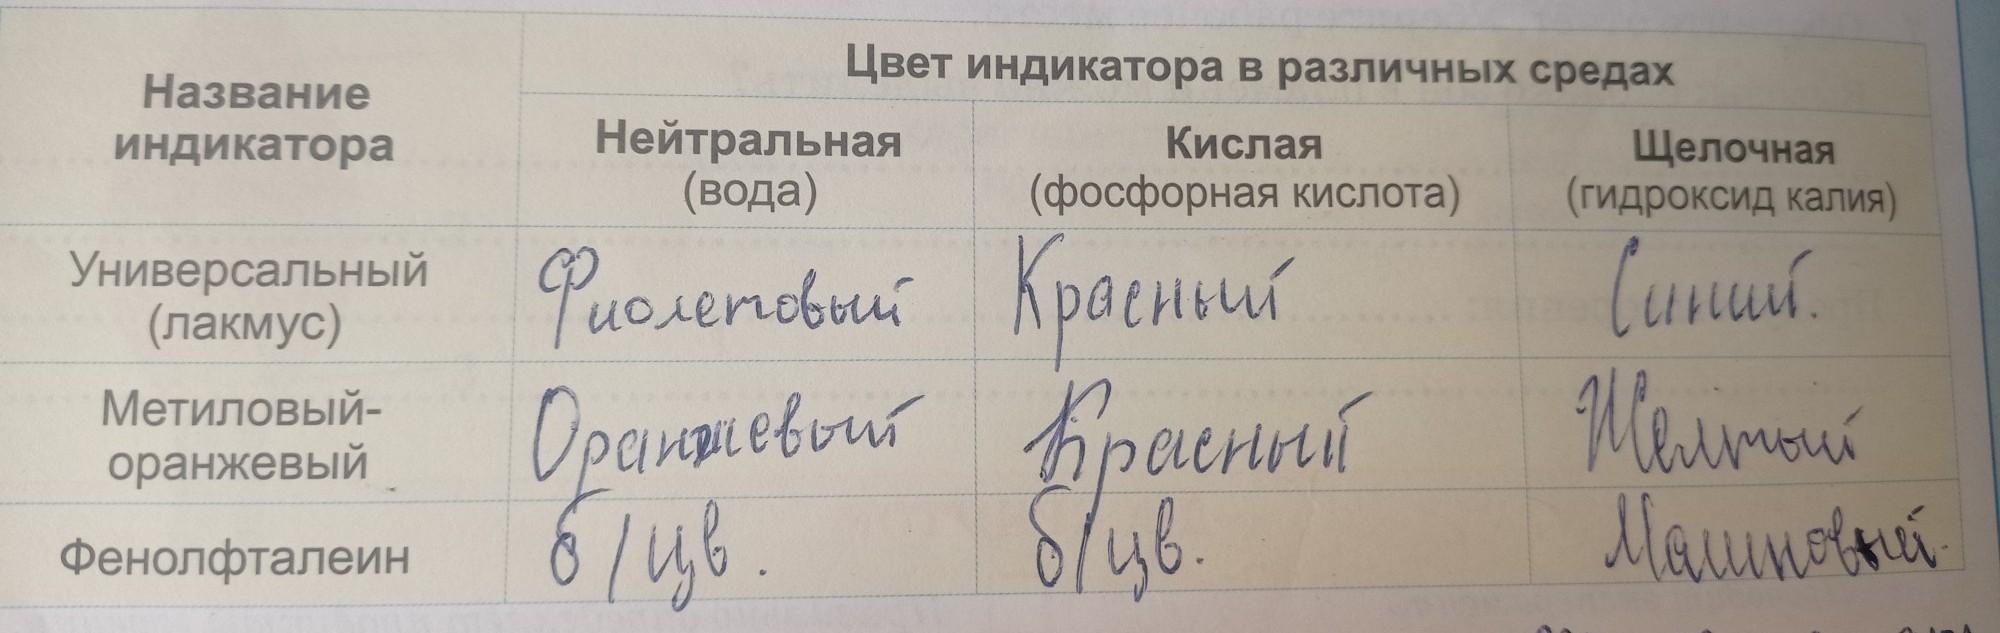 Название
индикатора
Цвет индикатора в различных средах
Нейтральная
(вода)
Кислая
(фосфорная кислота)
Щелочная
(гидроксид калия)
Универсальный
(лакмус)
Фиолетовый
Красный
Синий.
Метиловый-
оранжевый
Оранжевый
Красный
Желтый
Фенолфталеин
б/цв.
б/цв.
Малиновый.